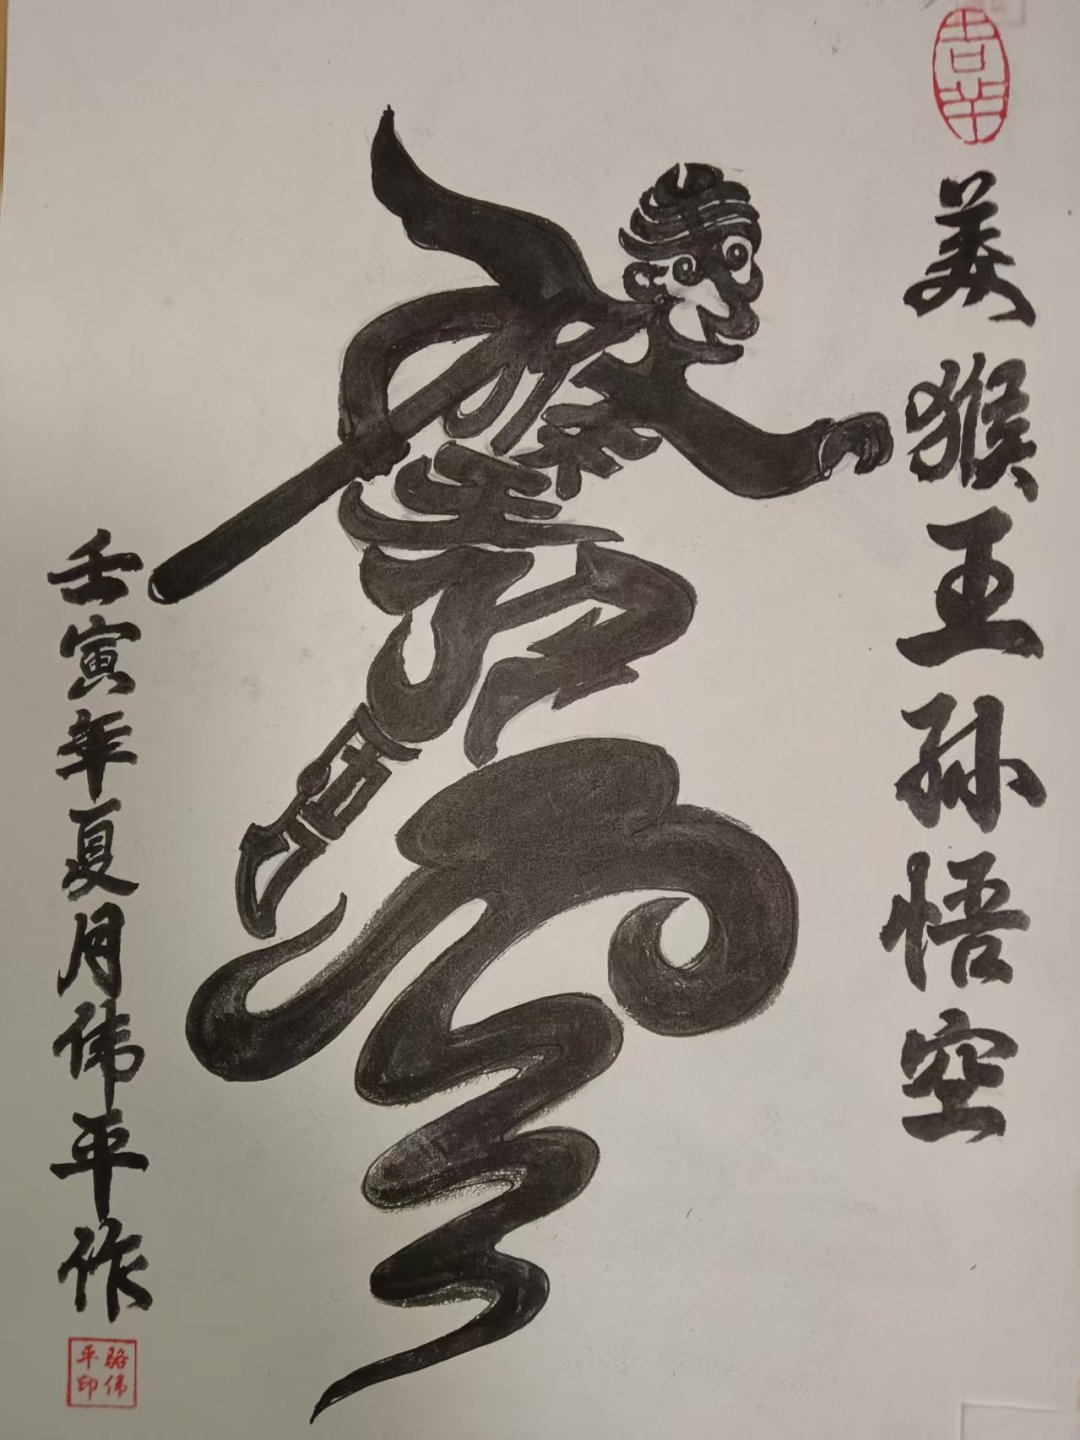 美猴王孙悟空
壬寅年夏月伟平作
吉羊
骆伟平印